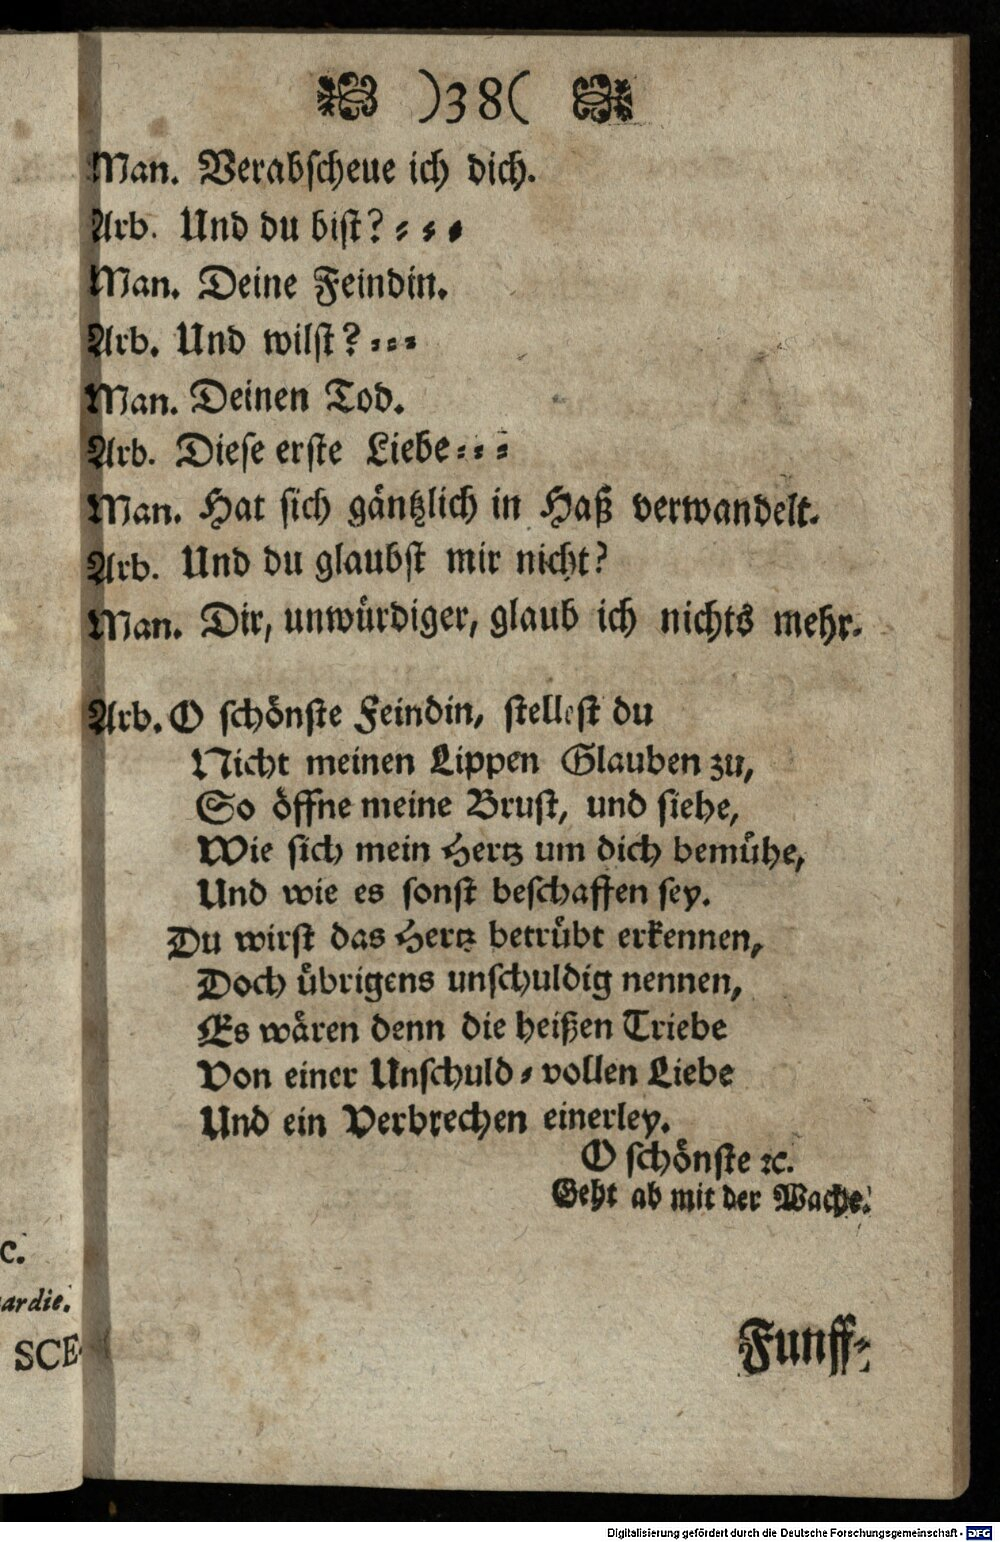 )38(
Man. Verabscheue ich dich.
Arb. Und du bist? - - -
Man. Deine Feindin.
Arb. Und wilst? - - -
Man. Deinen Tod.
Arb. Diese erste Liebe - - -
Man. Hat sich gäntzlich in Haß verwandelt.
Arb. Und du glaubst mir nicht?
Man. Dir, unwürdiger, glaub ich nichts mehr.
Arb. O schönste Feindin, stellest du
Nicht meinen Lippen Glauben zu,
So öffne meine Brust, und siehe,
Wie sich mein Hertz um dich bemühe,
Und wie es sonst beschaffen sey.
Du wirst das Hertz betrübt erkennen,
Doch übrigens unschuldig nennen,
Es wären denn die heißen Triebe
Von einer Unschuld-vollen Liebe
Und ein Verbrechen einerley.
O schönste ꝛc.
Geht ab mit der Wache.
Funff-
c.
ardie.
SCE-
Digitalisierung gefördert durch die Deutsche Forschungsgemeinschaft - DFG